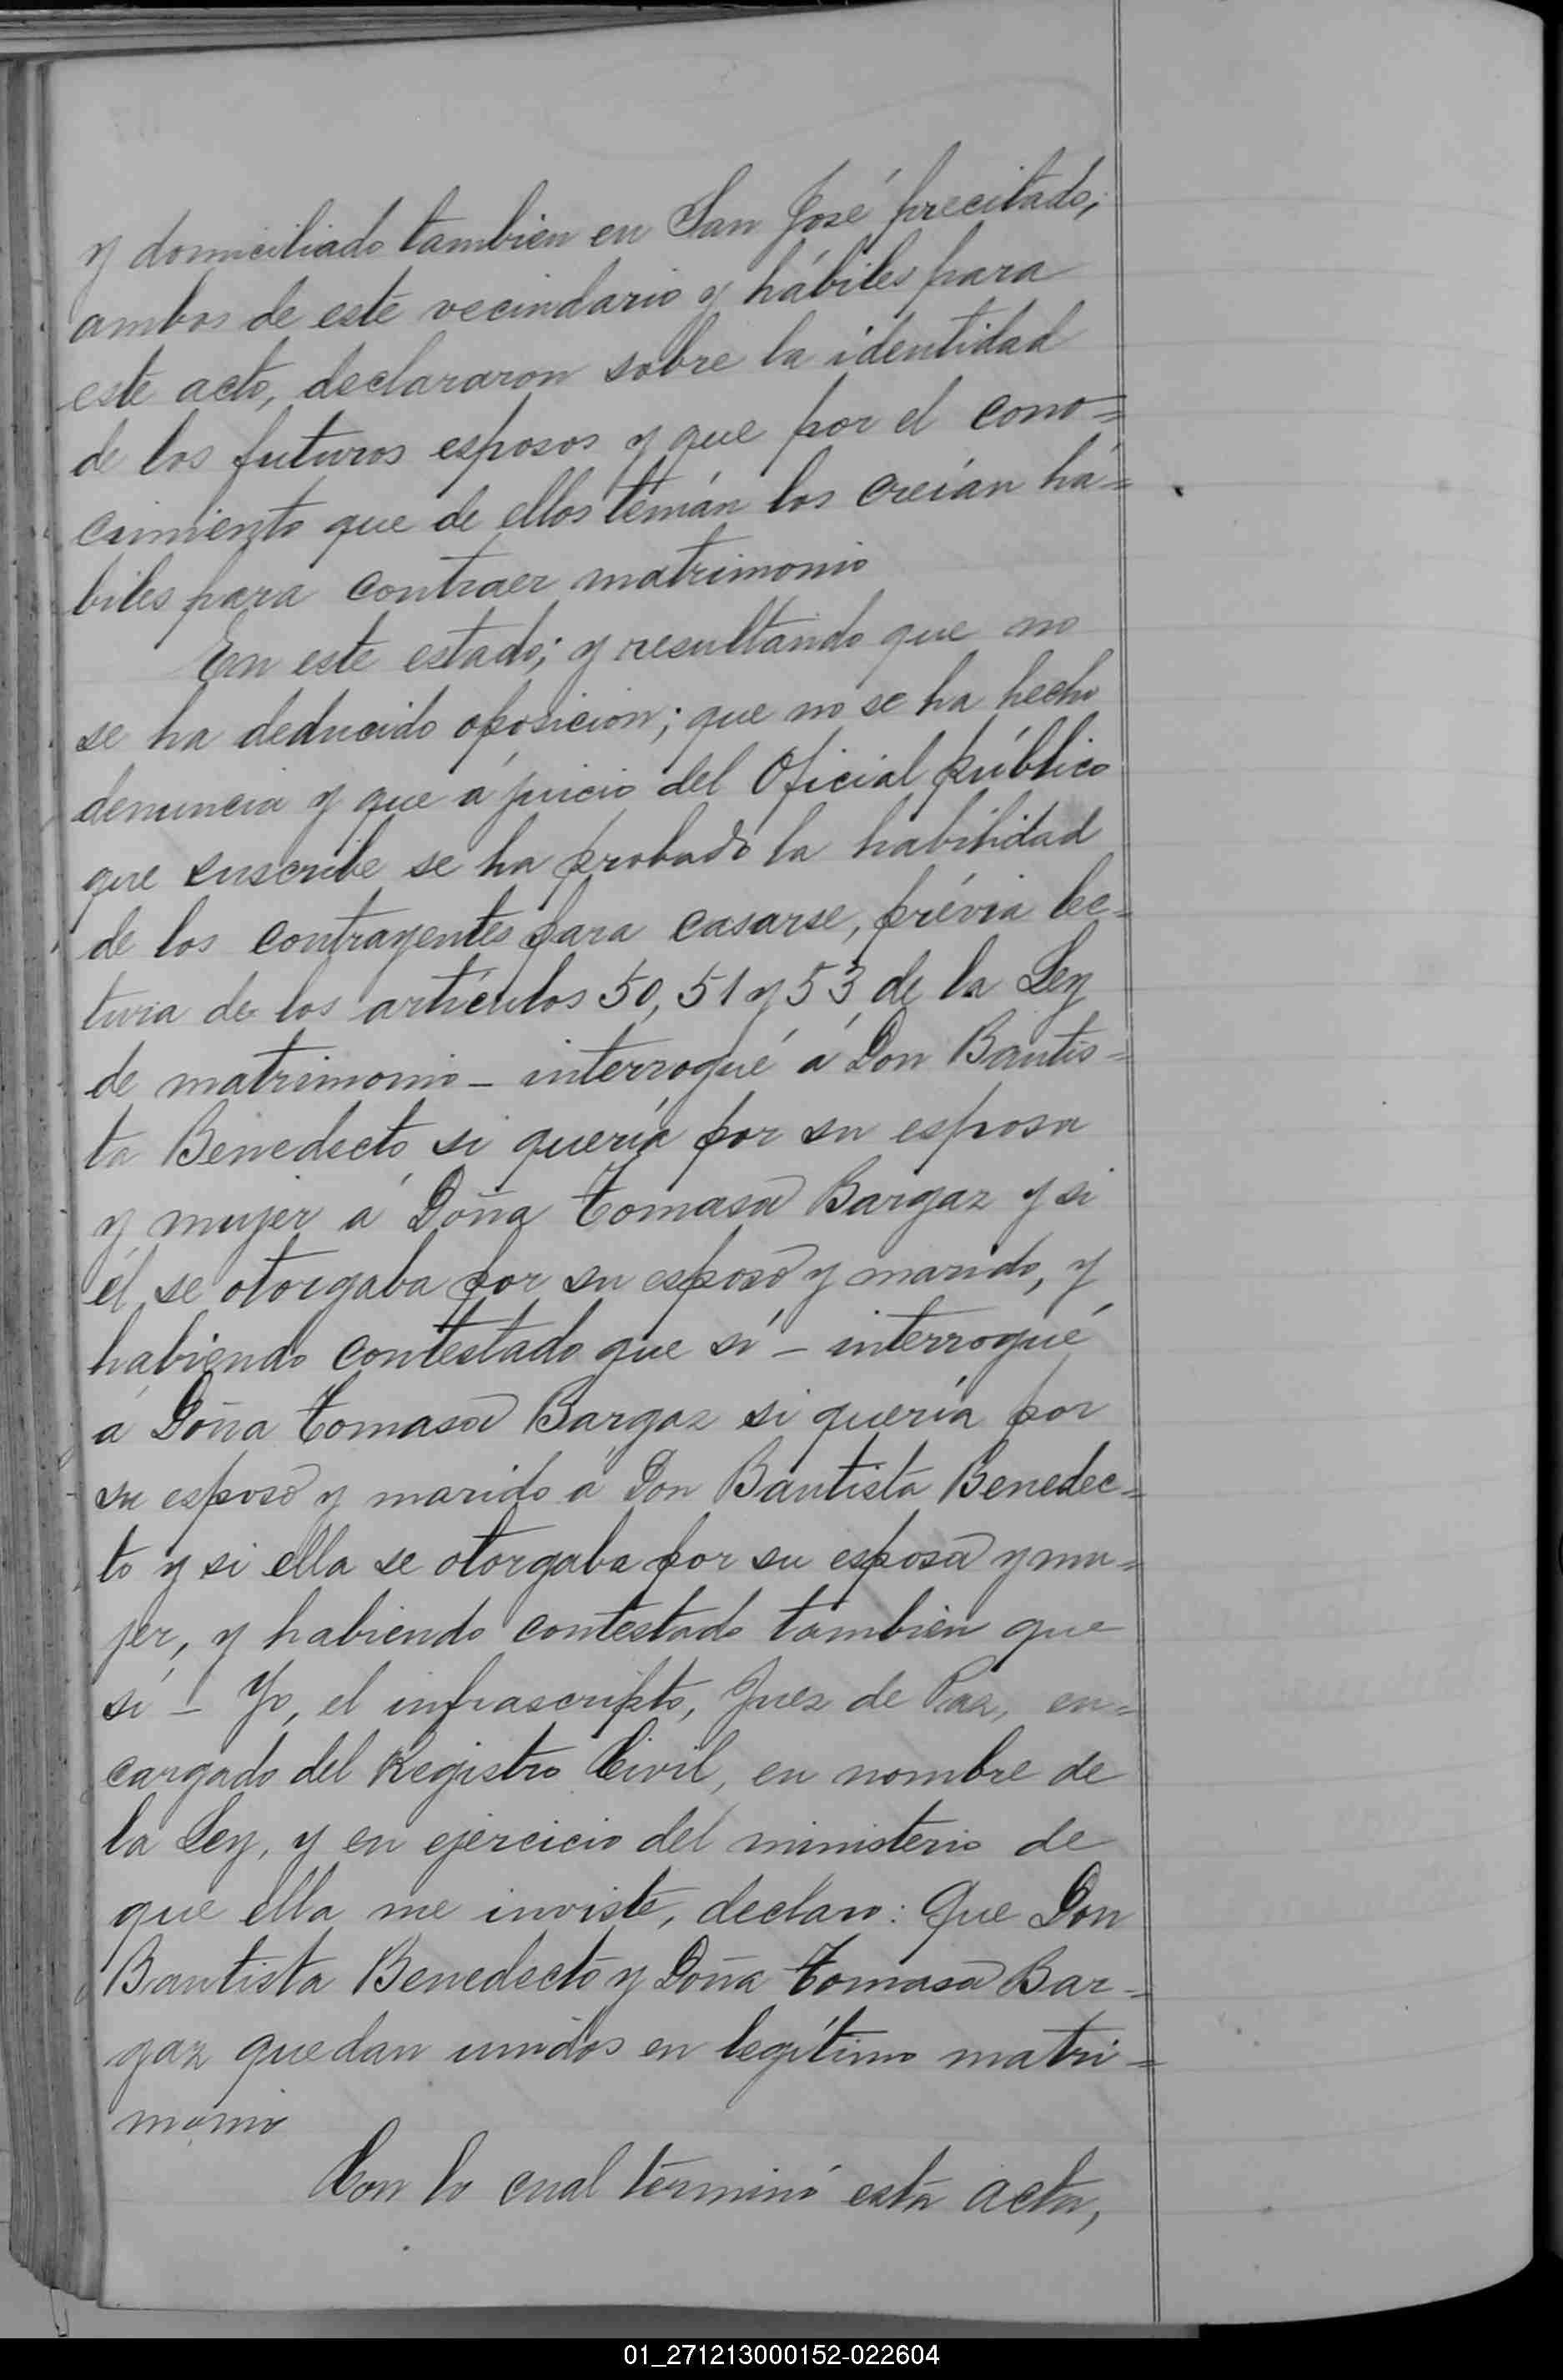 y domiciliado tambien en San José precitado;
ambos de este vecindario y hábiles para
este acto, declararon sobre la identidad
de los futuros esposos y que por el cono=
cimiento que de ellos tenían los creían há=
biles para contraer matrimonio
En este estado; y resultando que no
se ha deducido oposicion; que no se ha hecho
denuncia y que á juicio del Oficial público
que suscribe se ha probado la habilidad
de los contrayentes para casarse, prévia lec=
tura de los artículos 50, 51 y 53 de la Ley
de matrimonio - interrogué á Don Bautis=
ta Benedecto si quería por su esposa
y mujer á Doña Tomasa Bargaz y si
él se otorgaba por su esposo y marido, y
habiendo contestado que sí - interrogué
á Doña Tomasa Bargaz si quería por
su esposo y marido á Don Bautista Benedec=
to y si ella se otorgaba por su esposa y mu=
jer, y habiendo contestado tambien que
sí - Yo, el infrascripto, Juez de Paz, en=
cargado del Registro Civil, en nombre de
la Ley, y en ejercicio del ministerio de
que ella me inviste, declaro: Que Don
Bautista Benedecto y Doña Tomasa Bar=
gaz quedan unidos en legítimo matri=
monio
Con lo cual terminó esta acta,
01_271213000152-022604